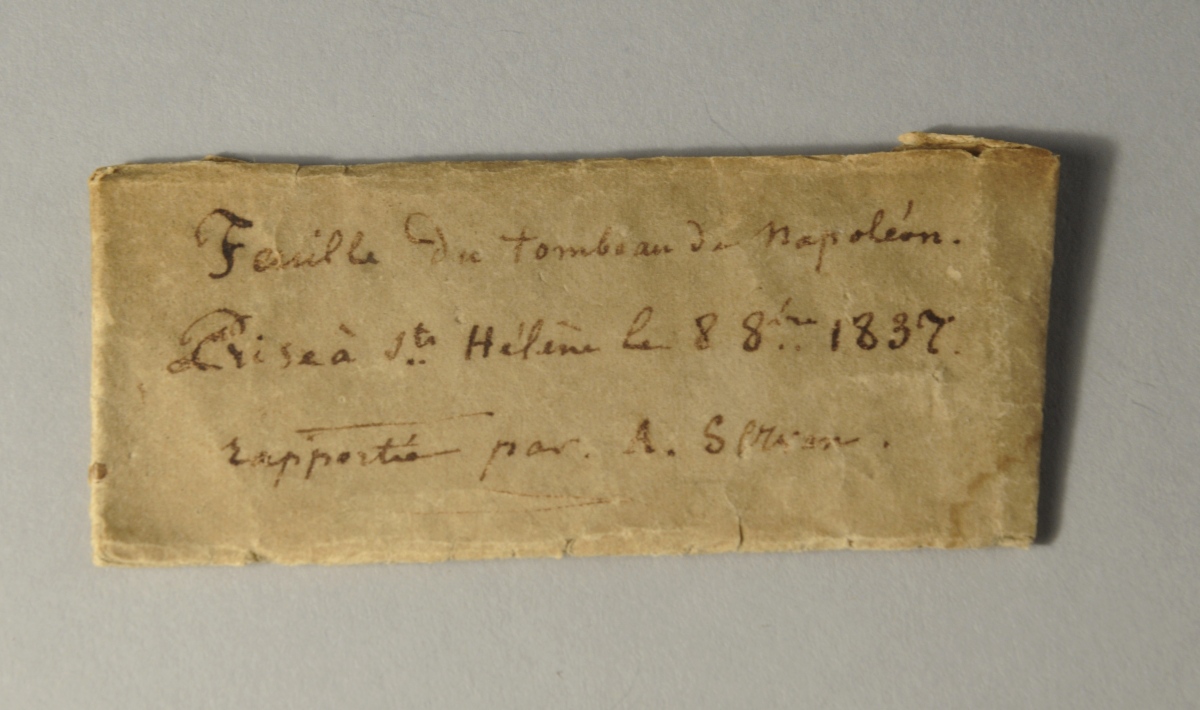 Feuille du tombeau de Napoléon.
Prise à Ste Hélène le 8 8bre 1837.
rapportée par. A.